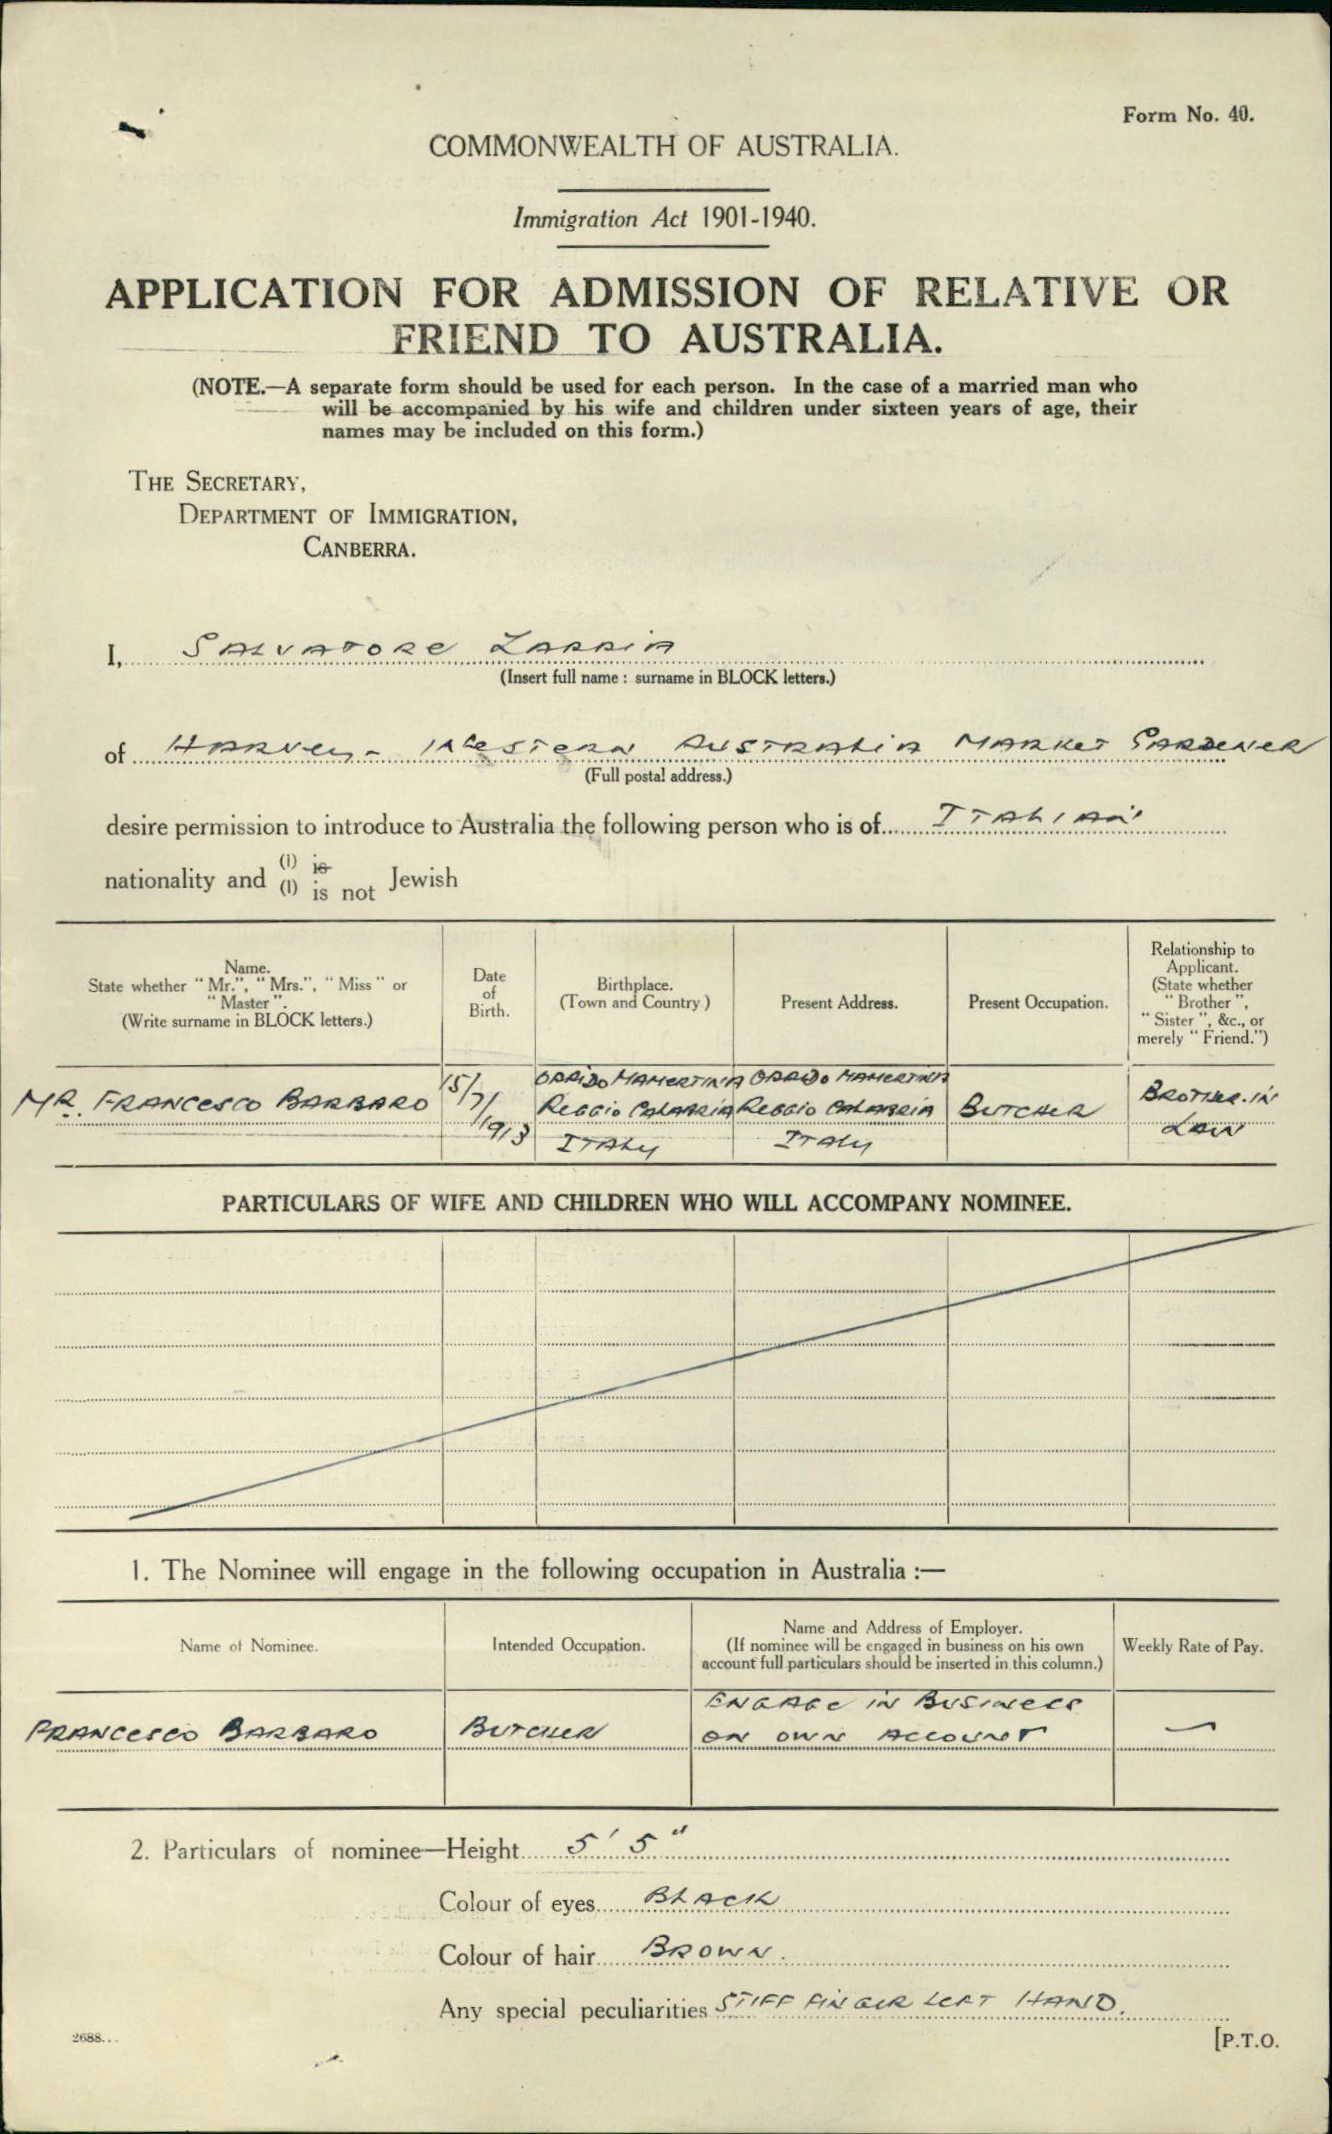 Form No. 40.
COMMONWEALTH OF AUSTRALIA.
Immigration Act 1901-1940.
APPLICATION FOR ADMISSION OF RELATIVE OR
FRIEND TO AUSTRALIA.
(NOTE.—A separate form should be used for each person. In the case of a married man who
will be accompanied by his wife and children under sixteen years of age, their
names may be included on this form.)
THE SECRETARY,
DEPARTMENT OF IMMIGRATION,
CANBERRA.
I, SALVATORE ZAPPIA
(Insert full name : surname in BLOCK letters.)
of HARVEY - WESTERN AUSTRALIA MARKET GARDENER
(Full postal address.)
desire permission to introduce to Australia the following person who is of ITALIAN
nationality and (1) is
(1) is not Jewish
Name.
State whether "Mr.", "Mrs.", "Miss" or
"Master".
(Write surname in BLOCK letters.)
Date
of
Birth.
Birthplace.
(Town and Country)
Present Address.
Present Occupation.
Relationship to
Applicant.
(State whether
"Brother",
"Sister", &c., or
merely "Friend.")
MR. FRANCESCO BARBARO
15/
7/
1913
OPPIDO MAMERTINA
REGGIO CALABRIA
ITALY
OPPIDO MAMERTINA
REGGIO CALABRIA
ITALY
BUTCHER
BROTHER-IN
LAW
PARTICULARS OF WIFE AND CHILDREN WHO WILL ACCOMPANY NOMINEE.
1. The Nominee will engage in the following occupation in Australia :—
Name of Nominee.
Intended Occupation.
Name and Address of Employer.
(If nominee will be engaged in business on his own
account full particulars should be inserted in this column.)
Weekly Rate of Pay.
FRANCESCO BARBARO
BUTCHER
ENGAGE IN BUSINESS
ON OWN ACCOUNT
—
2. Particulars of nominee—Height 5' 5"
Colour of eyes BLACK
Colour of hair BROWN.
Any special peculiarities STIFF FINGER LEFT HAND.
2688...
[P.T.O.